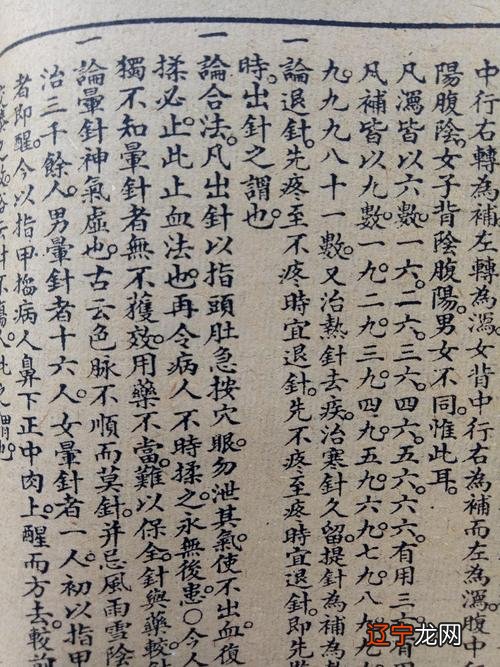 中行右轉為補左轉為瀉女背中行右為補而左為瀉腹中行
陽腹陰女子背陰腹陽男女不同惟此耳
凡瀉皆以六數一六二六三六四六五六六六有用三六有
凡補皆以九數一九二九三九四九五九六九七九八九九
九九九八十一數又治熱針去疾治寒針久留提針為補
一論退針先疼至不疼時宜退針先不疼至疼時宜退針即先
時出針之謂也
一論合法凡出針以指頭肚急按穴眼勿泄其氣使不出血復
揉必止此止血法也再令病人不時揉之永無後患○今人
獨不知暈針者無不獲效用藥不當難以保全針與藥較
一論暈針神氣虛也古云色脉不順而莫針并忌風雨雪陰
治三千餘人男暈針者十六人女暈針者一人初以指甲
者即醒今以指甲搯病人鼻下正中肉上醒而方去較
辽宁龙网
www.liaoninglong.com